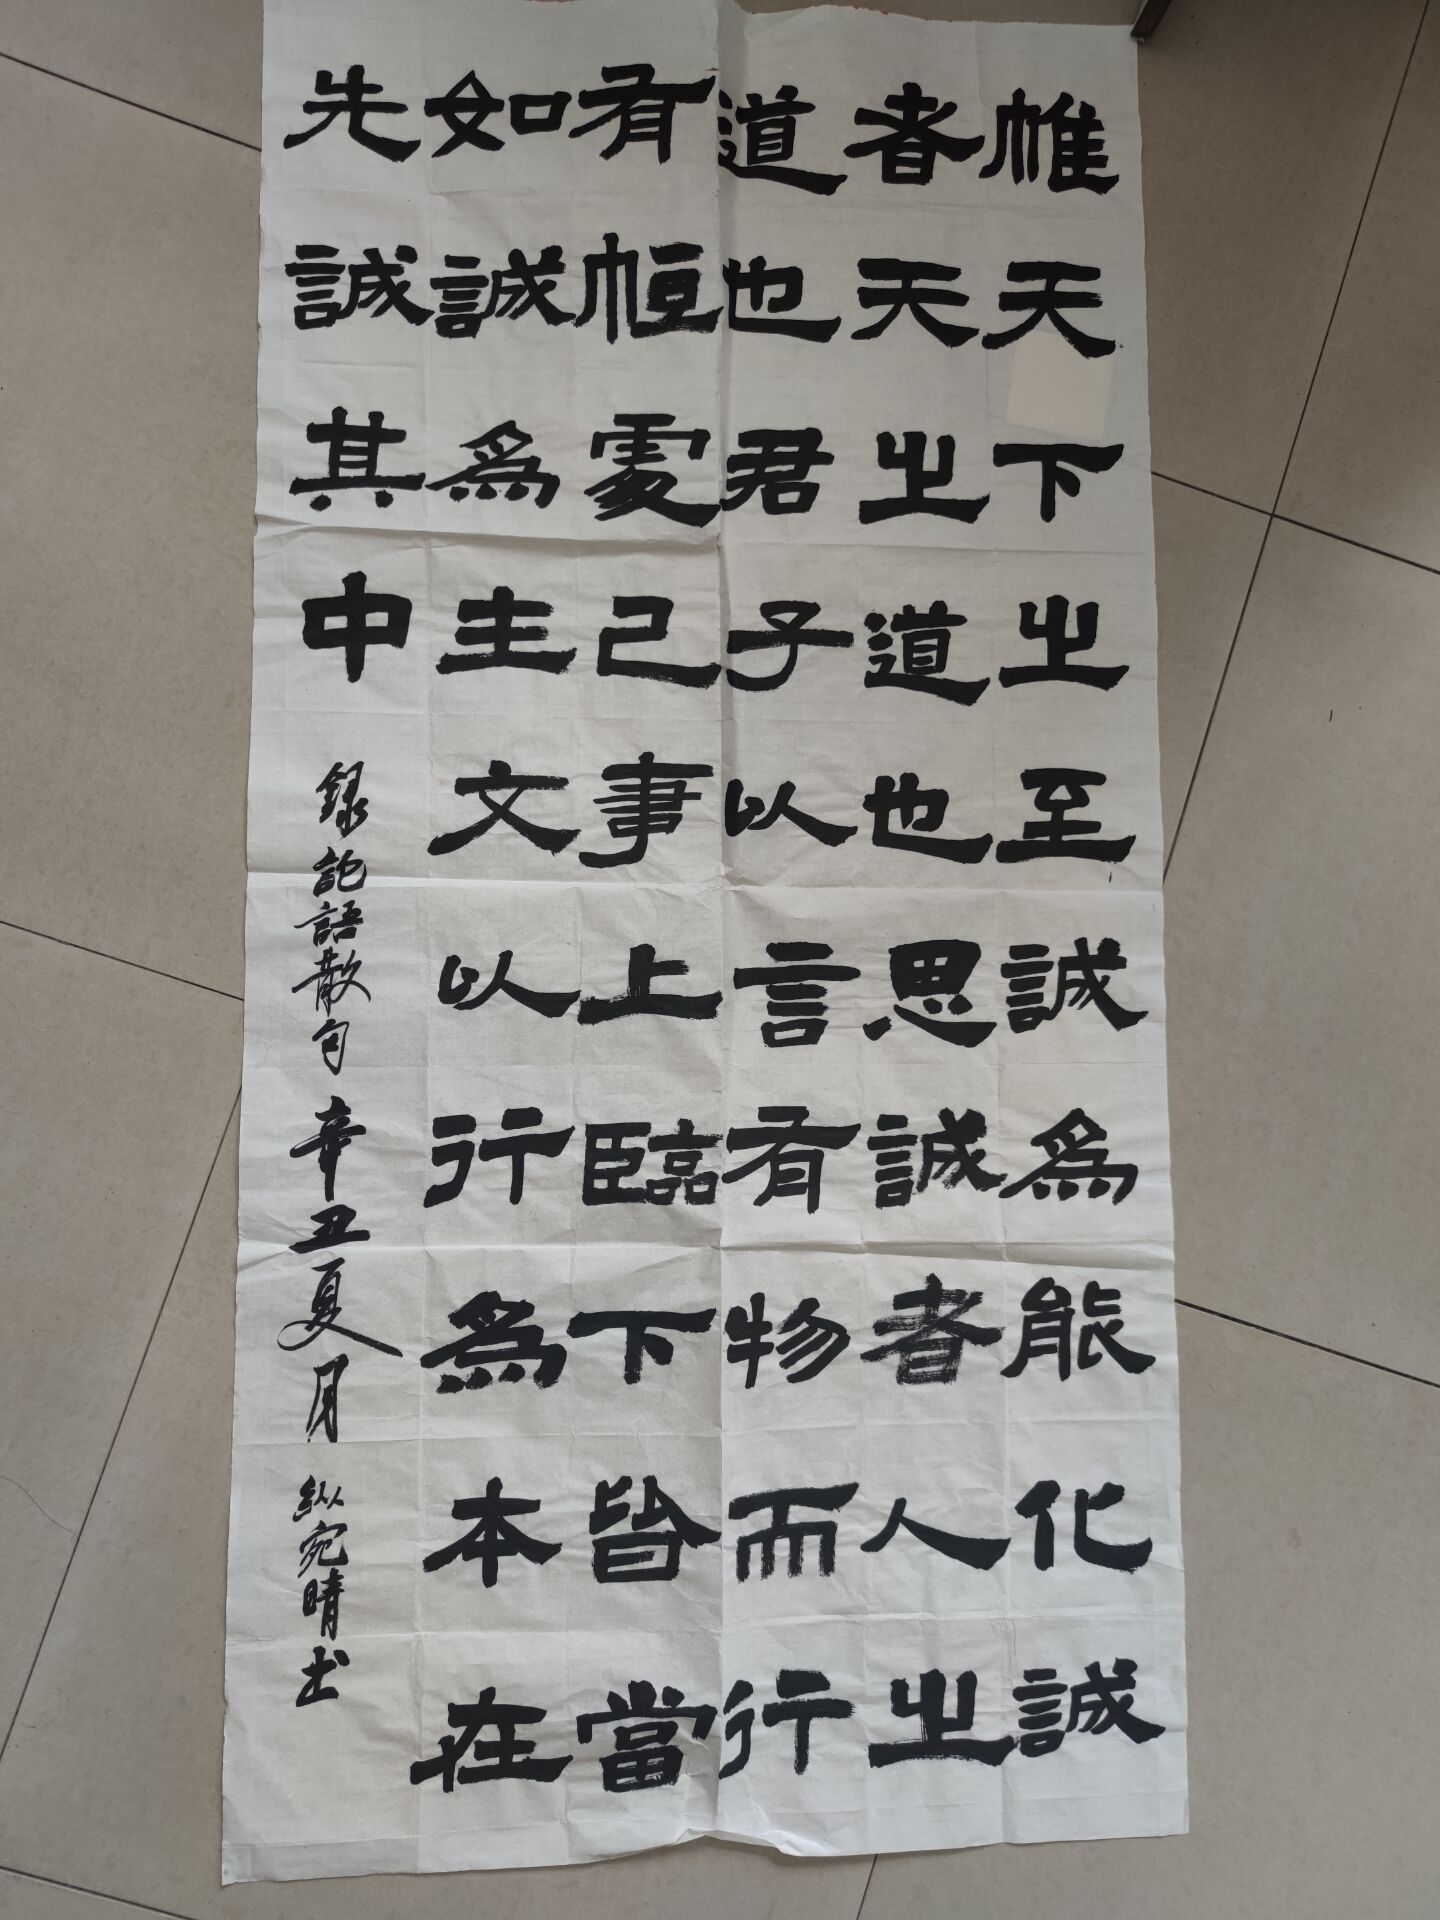 惟天下之至誠爲能化誠
者天之道也思誠者人之
道也君子以言有物而行
有恒處己事上臨下皆當
如誠爲主文以行爲本在
先誠其中
録論語散句辛丑夏月 縱宛晴书